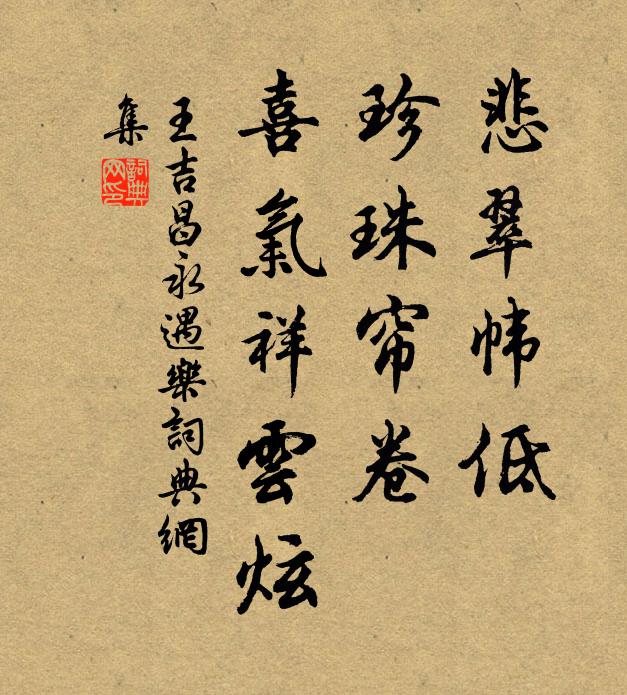 悲翠帏低
珍珠帘卷
喜氣祥雲炫
王吉昌永遇樂詞典網
集
詞典
网印